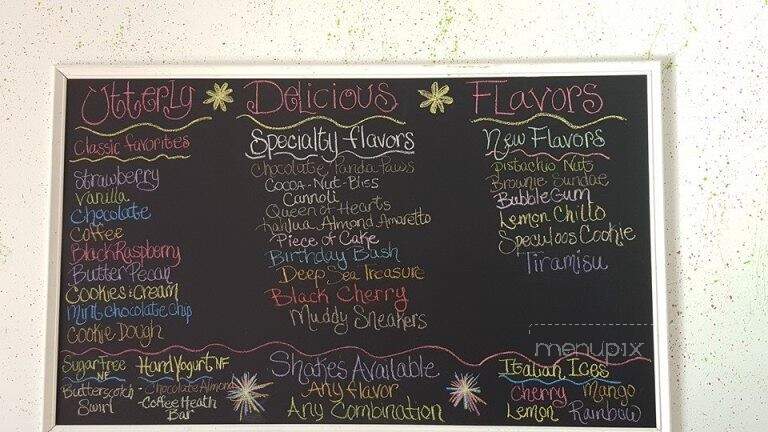 Utterly Delicious Flavors
Classic favorites
Strawberry
Vanilla
Chocolate
Coffee
Black Raspberry
Butter Pecan
Cookies & Cream
Mint Chocolate Chip
Cookie Dough
Specialty flavors
Chocolate Panda Paws
Cocoa-Nut-Bliss
Cannoli
Queen of Hearts
Kahlua Almond Amaretto
Piece of Cake
Birthday Bash
Deep Sea Treasure
Black Cherry
Muddy Sneakers
New Flavors
Pistachio Nut
Brownie Sundae
Bubble Gum
Lemon Chillo
Speculoos Cookie
Tiramisu
menupix
Sugar Free
NF
Butterscotch
Swirl
Hard Yogurt NF
- Chocolate Almond
- Coffee Heath
Bar
Shakes Available
Any flavor
Any Combination
Italian Ices
Cherry Mango
Lemon Rainbow